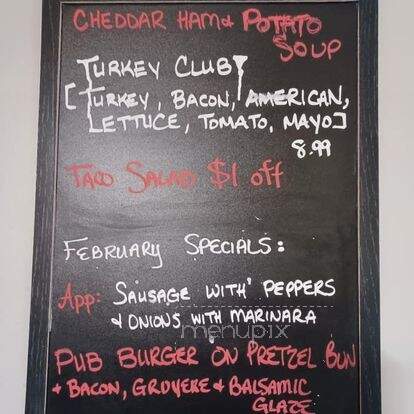 CHEDDAR HAM & POTATO
SOUP
TURKEY CLUB
[TURKEY, BACON, AMERICAN,
LETTUCE, TOMATO, MAYO]
8.99
TACO SALAD $1 off
FEBRUARY SPECIALS:
App: SAUSAGE WITH PEPPERS
& ONIONS WITH MARINARA
menupix
PUB BURGER ON PRETZEL BUN
& BACON, GRUYERE & BALSAMIC
GLAZE